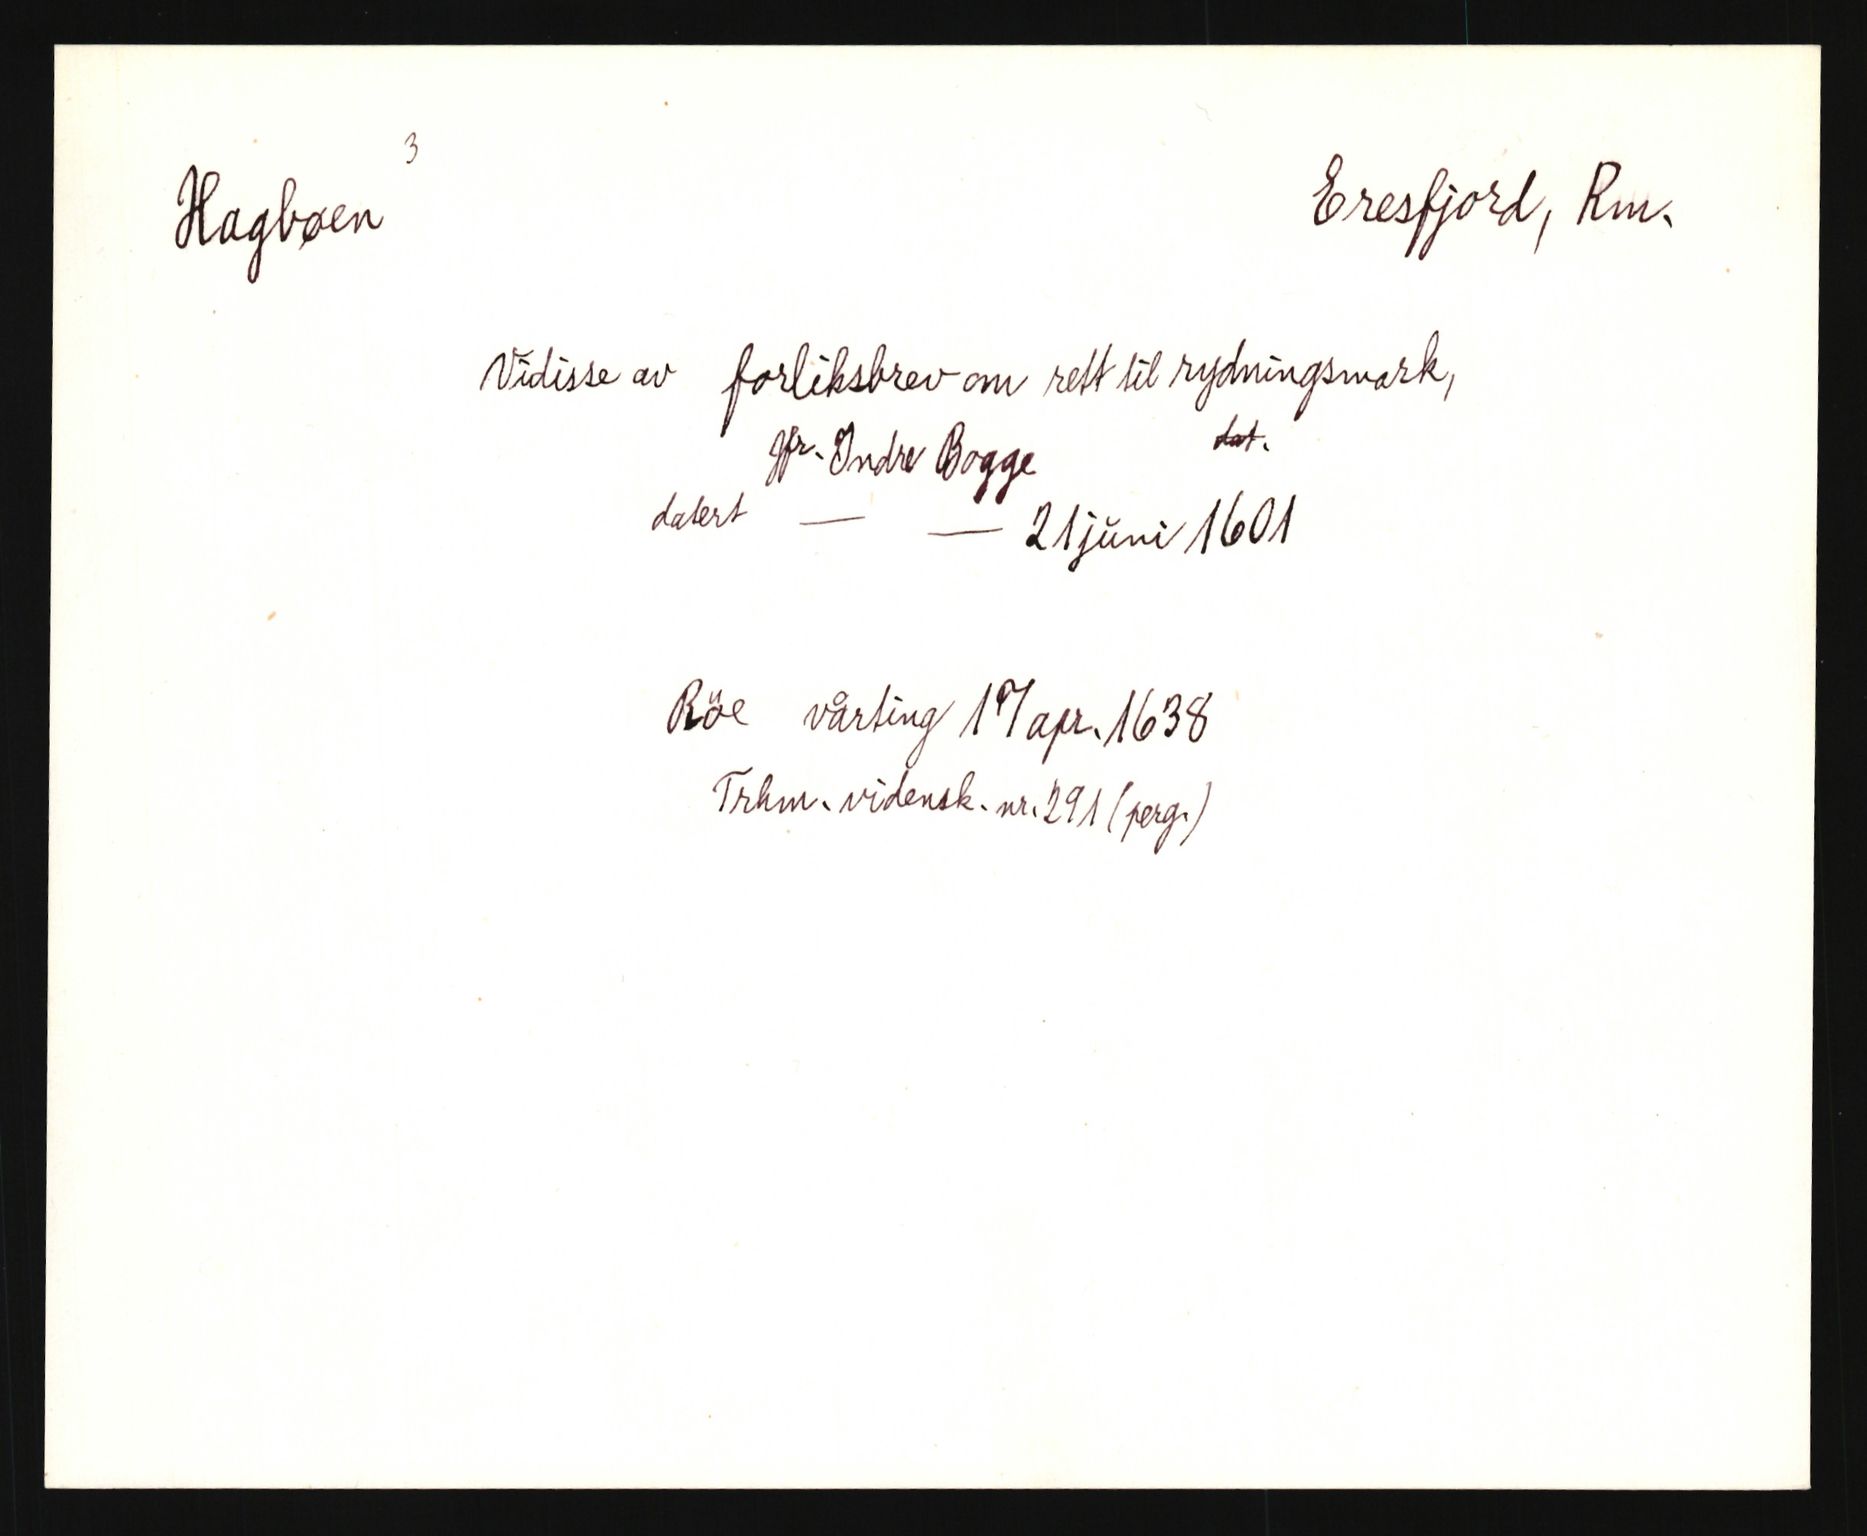 Hagbøen 3 Eresfjord, Rm.
Vidisse av forliksbrev om rett til rydningsmark,
Jfr. Indre Bogge dat.
datert — — 21 juni 1601
Röe vårting 17 apr. 1638
Trhm. vidensk. nr. 291 (perg.)